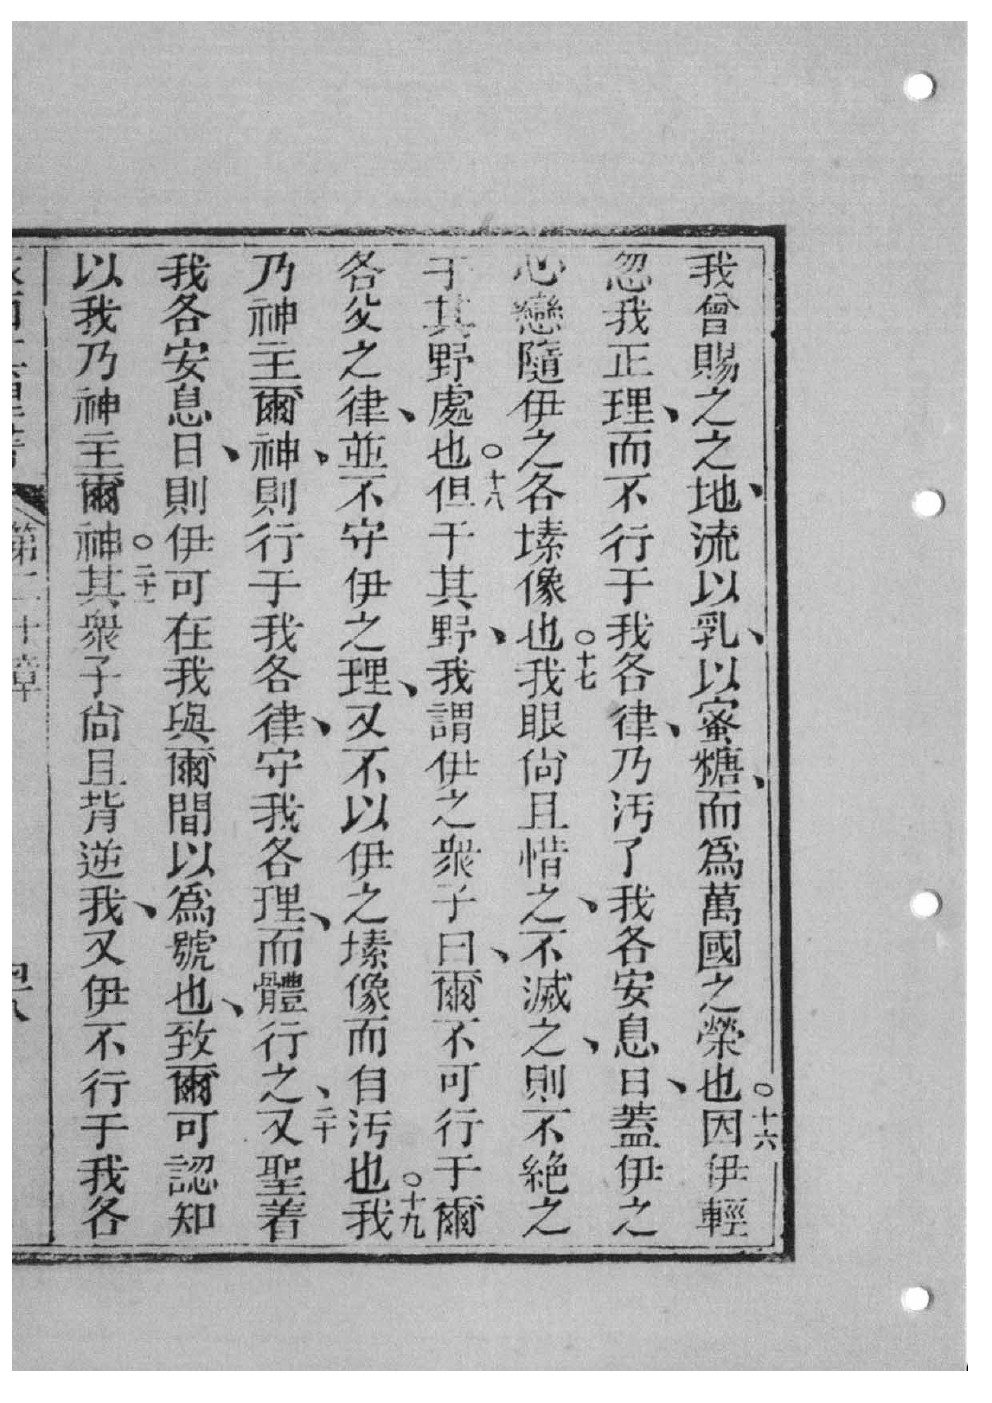 我曾賜之之地、流以乳、以蜜糖、而爲萬國之榮也○十六因伊輕
忽我正理、而不行于我各律、乃汚了我各安息日、蓋伊之
心戀隨伊之各塐像也○十七我眼尙且惜之、不滅之、則不絕之
于其野處也○十八但于其野、我謂伊之衆子曰、爾不可行于爾
各父之律、並不守伊之理、又不以伊之塐像而自汚也○十九我
乃神主爾神、則行于我各律、守我各理、而體行之、二十又聖着
我各安息日、則伊可在我與爾間以爲號也、致爾可認知
以我乃神主爾神○二十一其衆子尙且背逆我、又伊不行于我各
第二十章